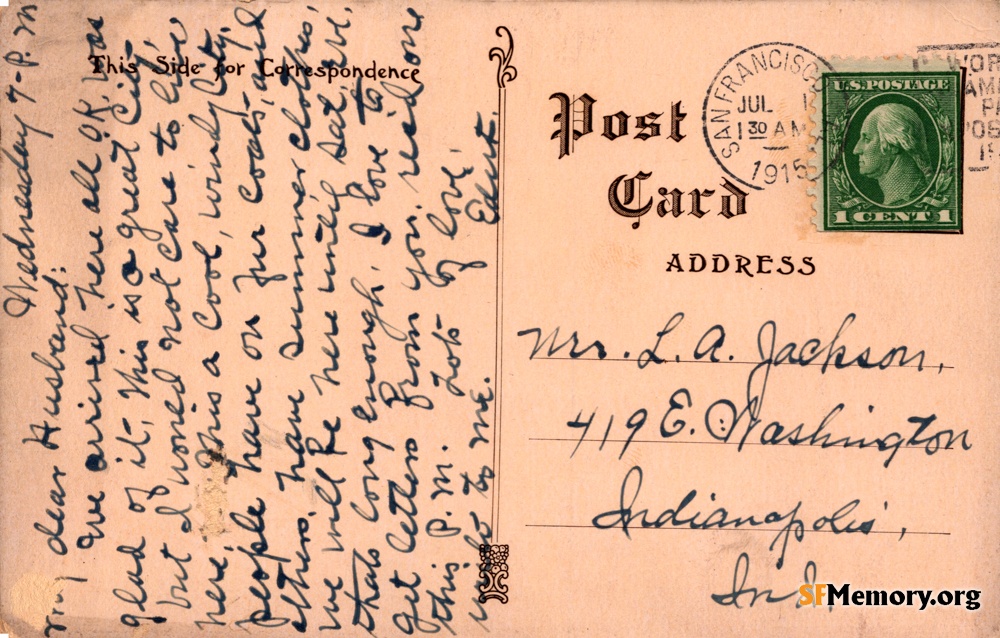 Wednesday 7-P.M
my dear Husband:
Ive arrived here all OK, was
glad of it, this is a great City,
but I would not care to live
here. This a cool, windy City,
people have on fur coats, and
others have summer clothes,
we will be here until Sat, eve.
thats long enough. I love to
get letters from you, rec'd one
this P.M. Lots of love,
write to me.
This Side for Correspondence
Post
Card
ADDRESS
SAN FRANCISCO
JUL
1 30 AM
1915
U.S. POSTAGE
1 CENT 1
Mrs. L. A. Jackson,
419 E. Washington
Indianapolis,
Ind.
SFMemory.org